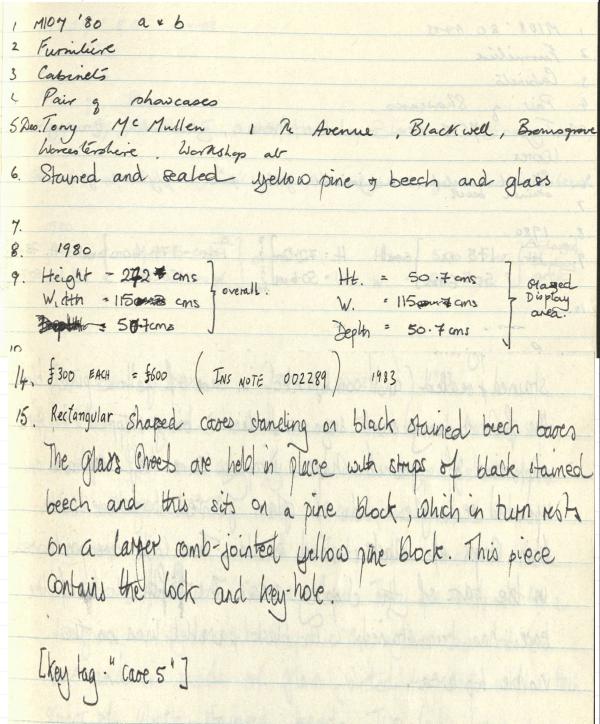 1 M107 '80 a & b
2 Furniture
3 Cabinets
4 Pair of showcases
5 Des. Tony McMullen 1 The Avenue, Blackwell, Bromsgrove
Worcestershire. Workshop at
6. Stained and sealed yellow pine & beech and glass
7.
8. 1980
9. Height - 272 cms
Width = 115 cms
Depth = 50.7 cms
overall.
Ht. = 50.7 cms
W. = 115 cms
Depth = 50.7 cms
Glazed
Display
area.
10
14. £300 EACH = £600 (INS NOTE 002289) 1983
15. Rectangular shaped cases standing on black stained beech bases
The glass sheets are held in place with strips of black stained
beech and this sits on a pine block, which in turn rests
on a larger comb-jointed yellow pine block. This piece
contains the lock and key-hole.
[Key tag - "Case 5"]